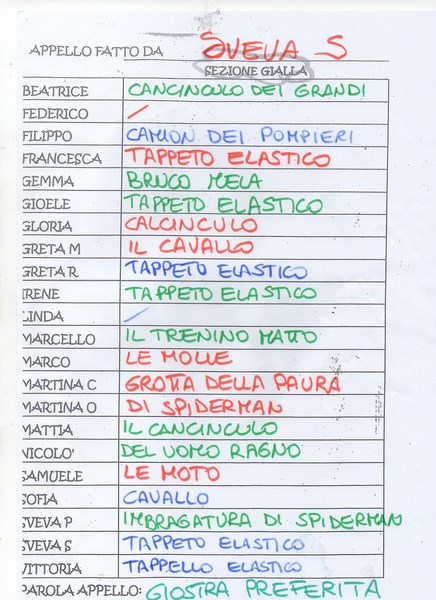 APPELLO FATTO DA SVEVA S
SEZIONE GIALLA
BEATRICE CANCINCULO DEI GRANDI
FEDERICO /
FILIPPO CAMION DEI POMPIERI
FRANCESCA TAPPETO ELASTICO
GEMMA BRUCO MELA
GIOELE TAPPETO ELASTICO
GLORIA CALCINCULO
GRETA M IL CAVALLO
GRETA R. TAPPETO ELASTICO
IRENE TAPPETO ELASTICO
LINDA /
MARCELLO IL TRENINO MATTO
MARCO LE MOLLE
MARTINA C GROTTA DELLA PAURA
MARTINA O DI SPIDERMAN
MATTIA IL CANCINCULO
NICOLO' DEL UOMO RAGNO
SAMUELE LE MOTO
SOFIA CAVALLO
SVEVA P IMBRAGATURA DI SPIDERMAN
SVEVA S TAPPETO ELASTICO
VITTORIA TAPPELLO ELASTICO
PAROLA APPELLO: GIOSTRA PREFERITA